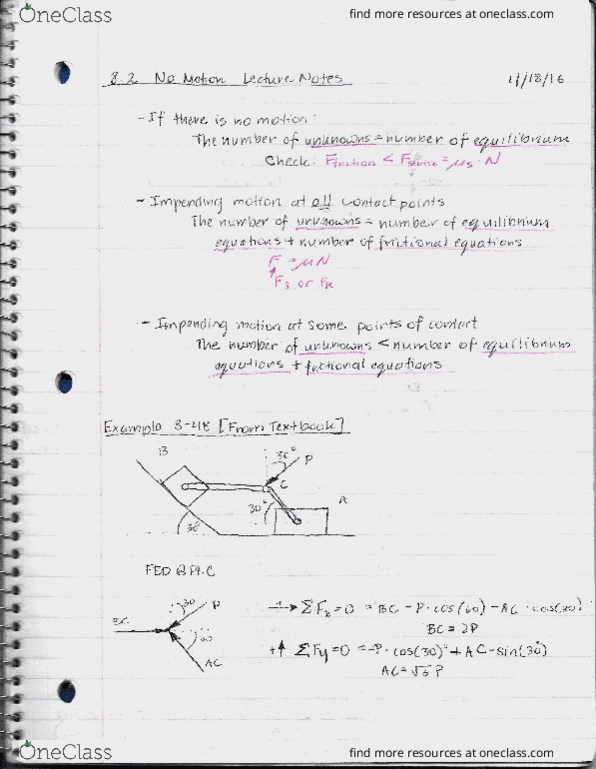 OneClass
find more resources at oneclass.com
8.2 No Motion Lecture Notes
11/18/16
- If there is no motion:
The number of unknowns = number of equilibrium
Check: Ffriction < Fstatic = μs · N
- Impending motion at all contact points
The number of unknowns = number of equilibrium
equations + number of frictional equations
F = μN
Fs or Fk
- Impending motion at some points of contact
The number of unknowns < number of equilibrium
equations + frictional equations
Example 8-48 [From Textbook]
B
30°
P
C
30°
A
30°
FBD @ Pt. C
30
P
BC
AC
→ ΣFx = 0 = BC - P · cos(60) - AC · cos(30)
BC = 2P
+↑ ΣFy = 0 = -P · cos(30)° + AC - sin(30)
AC = √3 P
OneClass
find more resources at oneclass.com